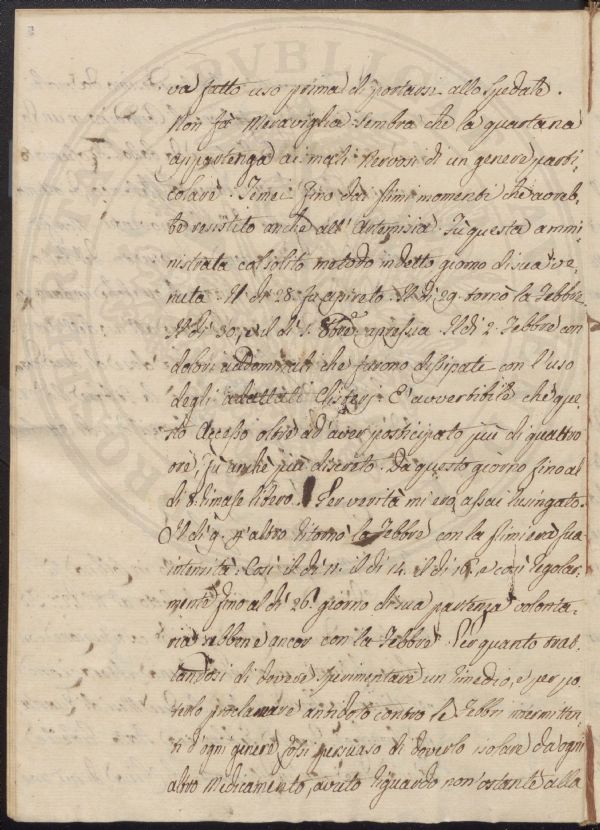 va fatto uso prima di portarsi allo Spedale.
Non fà Meraviglia sembra che la quartana
appartenga ai mali Nervosi di un genere parti-
colare. Temei fino dai primi momenti che avreb-
be resistito anche all'Artemisia. Fù questa ammi-
nistrata col solito metodo in detto giorno di sua ve-
nuta. Il dì 28. fu apireto. Il dì 29. tornò la Febbre
Il dì 30, e il dì 1. 8bre apressia. Il dì 2. Febbre con
dolori addominali che furono dissipate con l'uso
degli adattati Clisteri. È avvertibile che que-
sto Accesso oltre ad'aver posticipato più di quattro
ore, fù anche più discreto. Da questo giorno fino al
dì 8. rimase libero. Per verità mi era assai lusingato.
Il dì 9. p'altro ritornò la Febbre con la primiera sua
intensità. Così il dì 11. il dì 14. il dì 16. e così regolar-
mente fino al dì 26. giorno di sua partenza volonta-
ria sebbene ancor con la Febbre. Per quanto trat-
tandosi di dovere sperimentare un rimedio, e per po-
terlo proclamare antidoto contro le Febbri intermitten-
ti d'ogni genere, fosi persuaso di doverlo isolare da ogni
altro Medicamento, avuto riguardo non'ostante alla